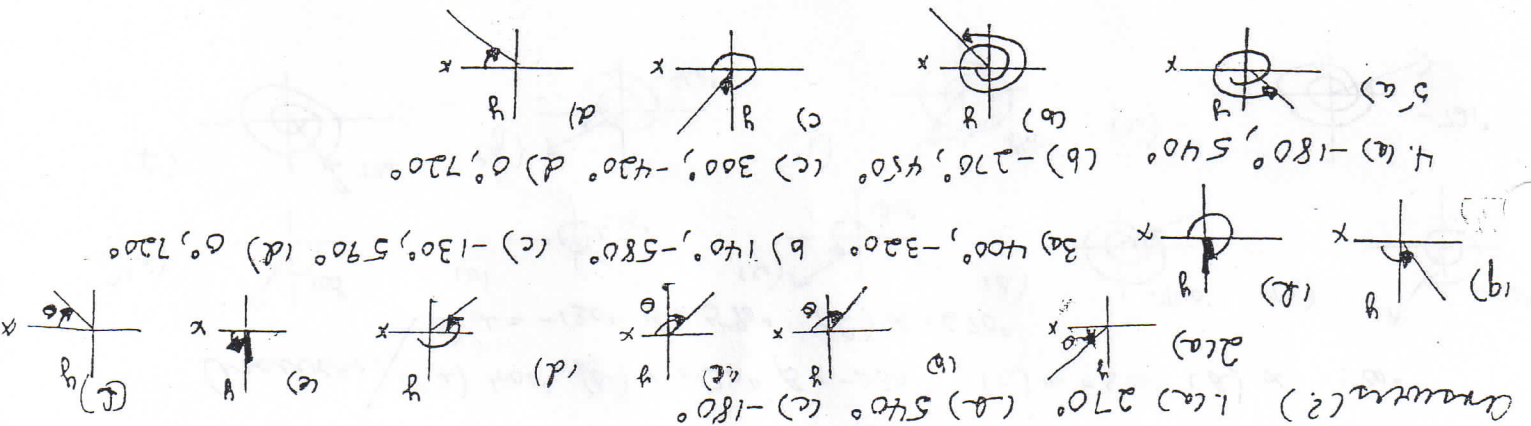 Answers (?) 1.(a) 270° (b) 540° (c) -180°
2(a) y x θ (b) y x θ (c) y x θ (d) y (e) y x (f) y x θ
(g) y x (h) y x 3a) 400°, -320° b) 140°, -580° (c) -130°, 590° (d) 0°, 720°
4. (a) -180°, 540° (b) -270°, 450° (c) 300°, -420° d) 0°, 720°
5 a) y x (b) y x c) y x d) y x